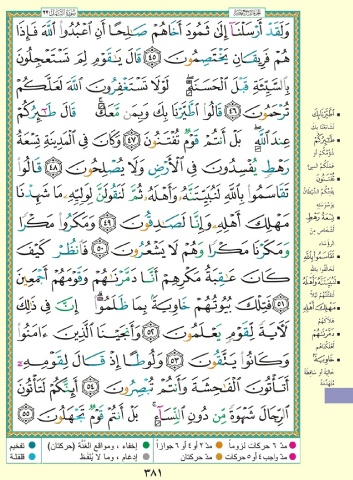 سورة النمل ٢٧
وَلَقَدْ أَرْسَلْنَآ إِلَىٰ ثَمُودَ أَخَاهُمْ صَـٰلِحًا أَنِ ٱعْبُدُوا۟ ٱللَّهَ فَإِذَا
هُمْ فَرِيقَانِ يَخْتَصِمُونَ ٤٥ قَالَ يَـٰقَوْمِ لِمَ تَسْتَعْجِلُونَ
بِٱلسَّيِّئَةِ قَبْلَ ٱلْحَسَنَةِ ۖ لَوْلَا تَسْتَغْفِرُونَ ٱللَّهَ لَعَلَّكُمْ
تُرْحَمُونَ ٤٦ قَالُوا۟ ٱطَّيَّرْنَا بِكَ وَبِمَن مَّعَكَ ۚ قَالَ طَـٰٓئِرُكُمْ
عِندَ ٱللَّهِ ۖ بَلْ أَنتُمْ قَوْمٌ تُفْتَنُونَ ٤٧ وَكَانَ فِى ٱلْمَدِينَةِ تِسْعَةُ
رَهْطٍ يُفْسِدُونَ فِى ٱلْأَرْضِ وَلَا يُصْلِحُونَ ٤٨ قَالُوا۟
تَقَاسَمُوا۟ بِٱللَّهِ لَنُبَيِّتَنَّهُۥ وَأَهْلَهُۥ ثُمَّ لَنَقُولَنَّ لِوَلِيِّهِۦ مَا شَهِدْنَا
مَهْلِكَ أَهْلِهِۦ وَإِنَّا لَصَـٰدِقُونَ ٤٩ وَمَكَرُوا۟ مَكْرًا
وَمَكَرْنَا مَكْرًا وَهُمْ لَا يَشْعُرُونَ ٥٠ فَٱنظُرْ كَيْفَ
كَانَ عَـٰقِبَةُ مَكْرِهِمْ أَنَّا دَمَّرْنَـٰهُمْ وَقَوْمَهُمْ أَجْمَعِينَ
٥١ فَتِلْكَ بُيُوتُهُمْ خَاوِيَةًۢ بِمَا ظَلَمُوٓا۟ ۗ إِنَّ فِى ذَٰلِكَ
لَـَٔايَةً لِّقَوْمٍ يَعْلَمُونَ ٥٢ وَأَنجَيْنَا ٱلَّذِينَ ءَامَنُوا۟
وَكَانُوا۟ يَتَّقُونَ ٥٣ وَلُوطًا إِذْ قَالَ لِقَوْمِهِۦٓ
أَتَأْتُونَ ٱلْفَـٰحِشَةَ وَأَنتُمْ تُبْصِرُونَ ٥٤ أَئِنَّكُمْ لَتَأْتُونَ
ٱلرِّجَالَ شَهْوَةً مِّن دُونِ ٱلنِّسَآءِ ۚ بَلْ أَنتُمْ قَوْمٌ تَجْهَلُونَ ٥٥
اطَّيَّرْنا بك
تشاءمنا بك
طائركم
شؤمكم
تفتنون
تسعة رهط
تقاسموا بالله
لنبيتنه وأهله
مهلك أهله
هلاكهم
دمرناهم
أهلكناهم
خاوية
خالية أو ساقطة
متهدمة
مدّ ٦ حركات لزوماً مدّ ٢ أو ٤ أو ٦ جوازاً إخفاء، ومواقع الغُنَّة (حركتان) تفخيم
مدّ واجب ٤ أو ٥ حركات مدّ حركتان إدغام، وما لا يُلفَظ قلقلة
٣٨١